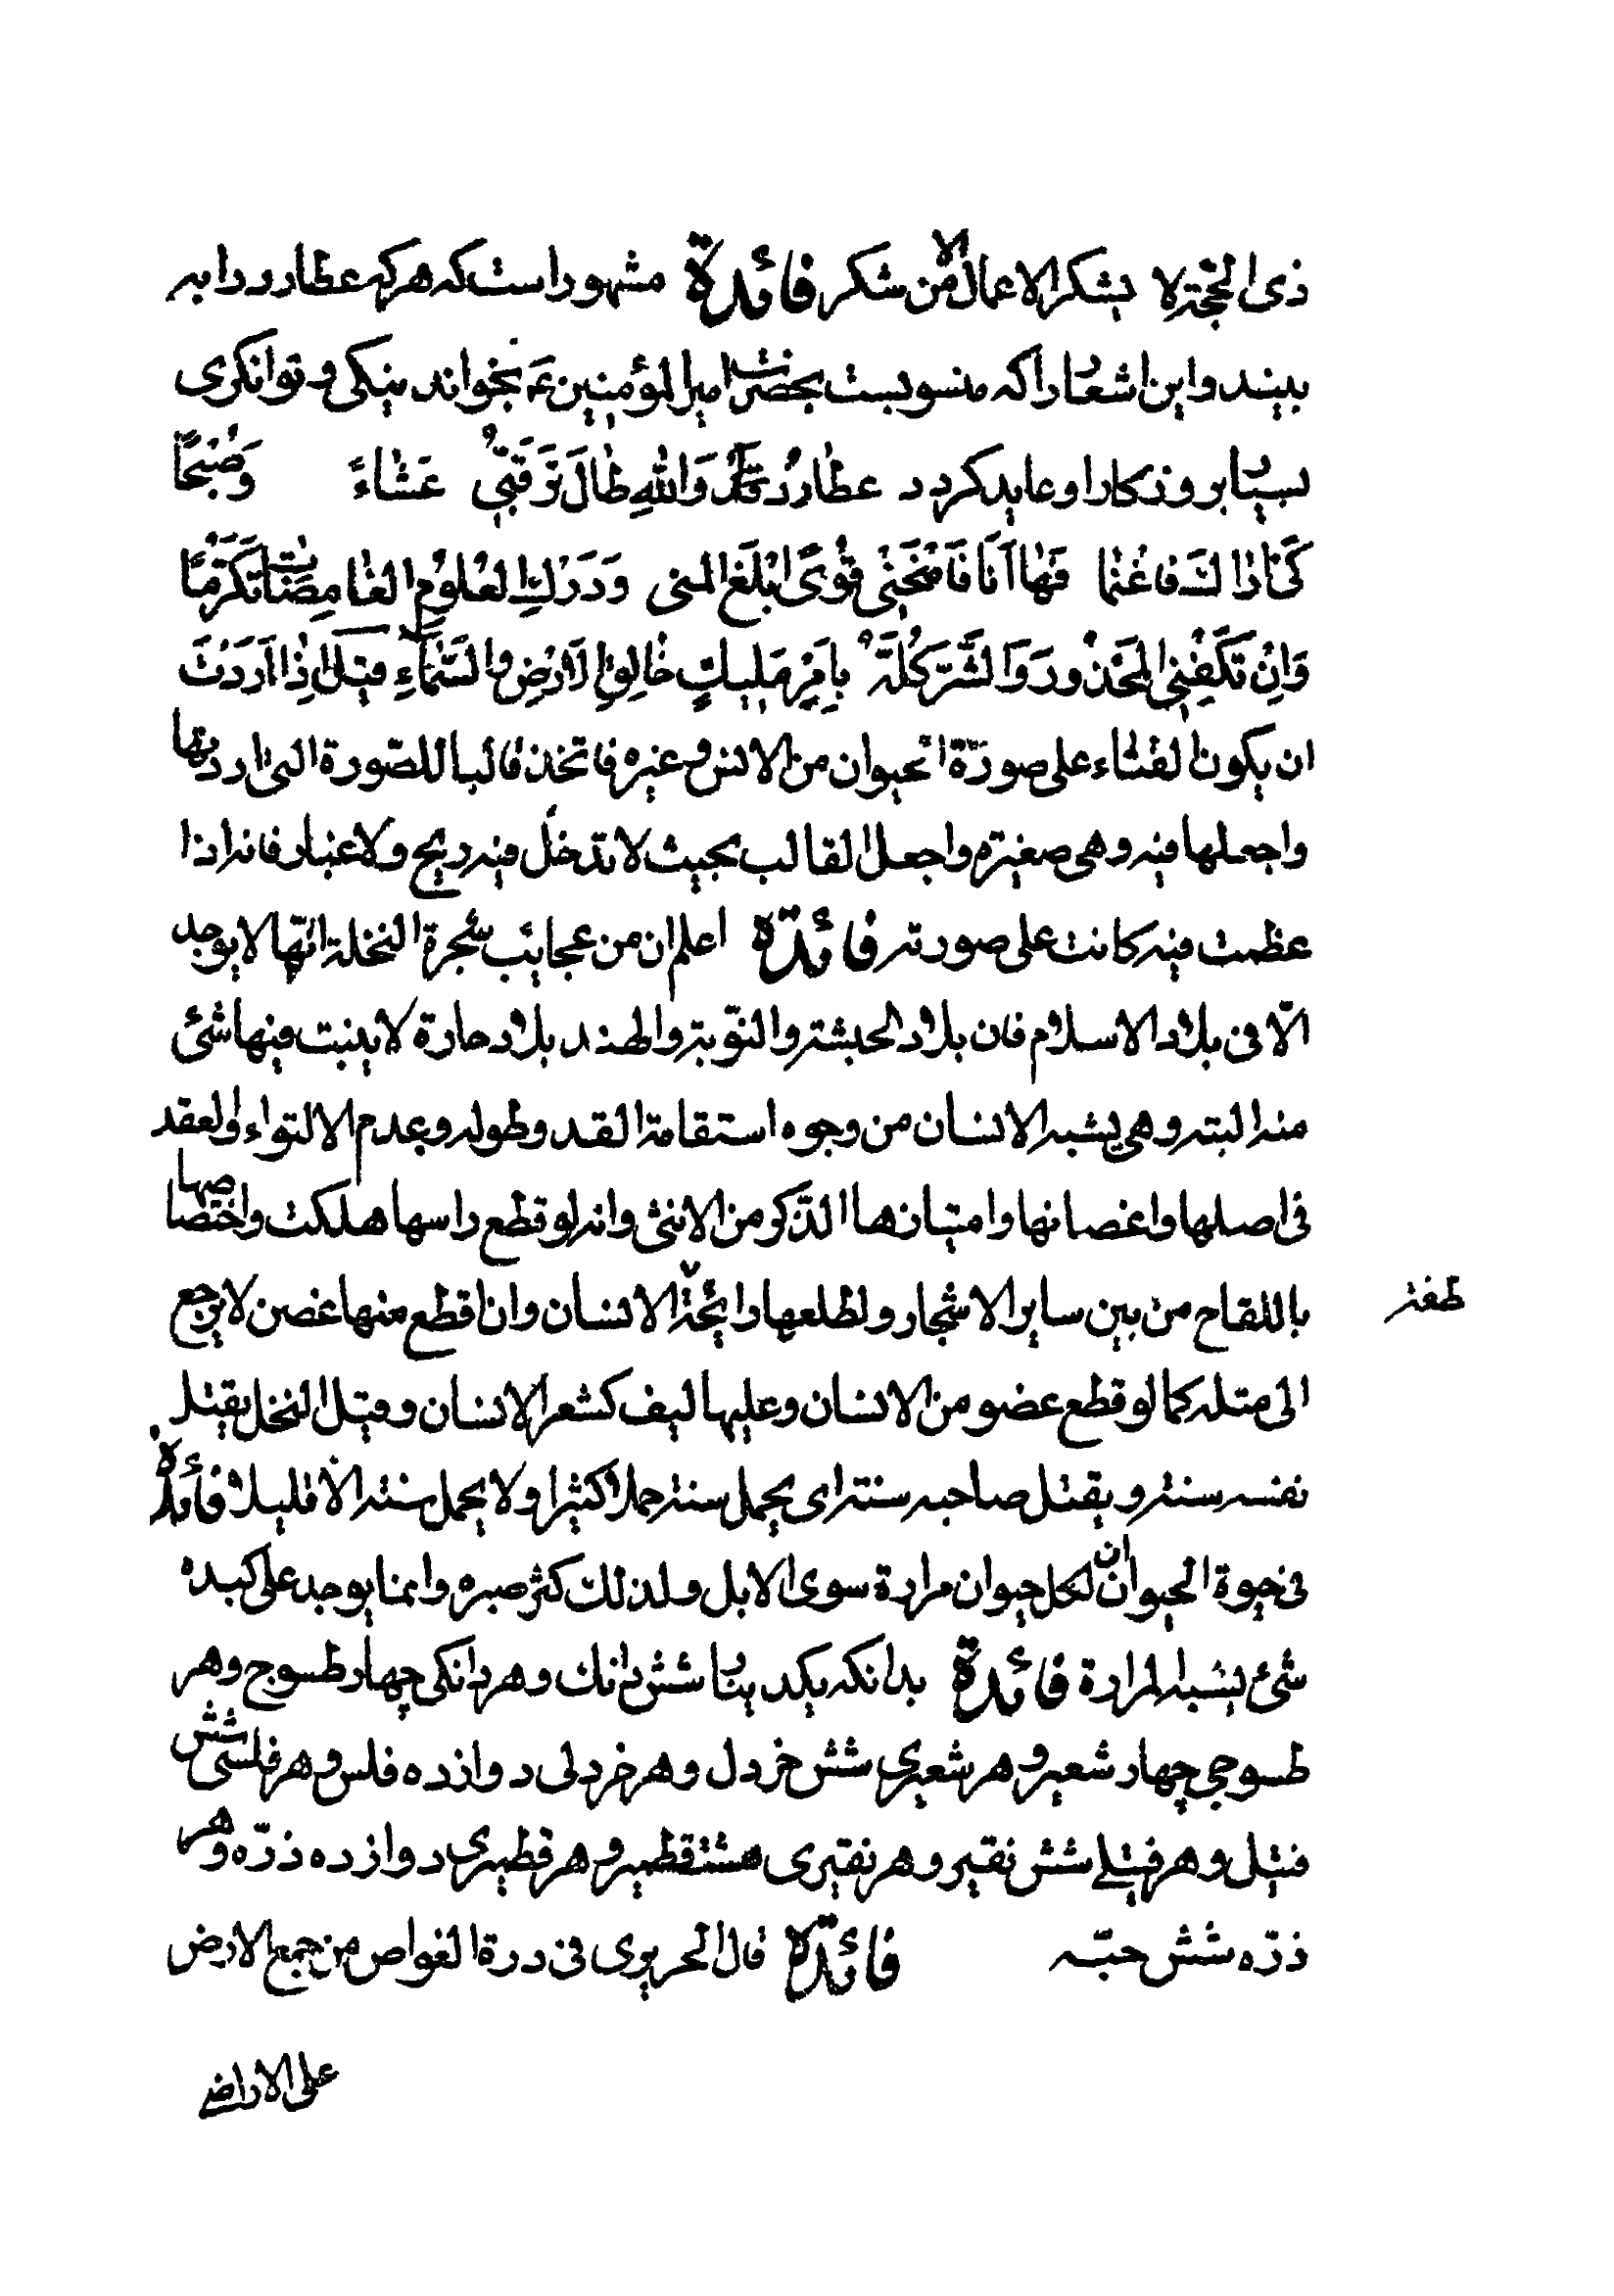 ذی الحجة لا یشکر الاعمال الا من شکر فائدة مشهور است که هر که عطارد را به
بیند و این اشعار را که منسوبست بحضرت امیر المؤمنین ع بخواند نیکی و توانکری
بسیار بروزکار او عاید کردد عطارد قد والله طال ترقبی عشاء وصبحا
کی نراك فاغنما فها انا فامنحنی قوی ابلغ المنی ودرك العلوم الغامضات تکرما
وان تکفنی المحذور والشر کله بامر ملیك خالق الارض والسماء قیل اذا اردت
ان یکون القثاء علی صورة الحیوان من الانس وغیره فاتخذ قالبا للصورة التی اردتها
واجعلها فیه وهی صغیره واجعل القالب بحیث لا تدخل فیه ریح ولا غبار فانه اذا
عظمت فیه کانت علی صورته فائدة اعلم ان من عجایب شجرة النخلة انها لا یوجد
الا فی بلاد الاسلام فان بلاد الحبشة والنوبة والهند بلاد حارة لا ینبت فیها شئ
منه البته وهی یشبه الانسان من وجوه استقامة القد وطوله وعدم الالتواء والعقد
فی اصلها واغصانها وامتیازها الذکر من الانثی وانه لو قطع راسها هلکت واختصاصها
باللقاح من بین سایر الاشجار ولطلعها رایحة الانسان وان قطع منها غصن لا یرجع
الی مثله کما لو قطع عضو من الانسان وعلیها لیف کشعر الانسان وقیل النخل یقتل
نفسه سنة ویقتل صاحبه سنة ای یحمل سنة حملا کثیرا ولا یحمل سنة الا قلیلا فائدة
فی حیوة الحیوان ان لکل حیوان مرارة سوی الابل ولذلك کثر صبره وانما یوجد علی کبده
شئ یشبه المرارة فائدة بدانکه یکدینار شش دانك وهر دانکی چهار طسوج وهر
طسوجی چهار شعیر وهر شعیری شش خردل وهر خردلی دوازده فلس وهر فلسی شش
فتیل وهر فتیلی شش نقیر وهر نقیری هشت قطمیر وهر قطمیری دوازده ذره وهر
ذره شش حبه فائدة قال الحریری فی درة الغواص من جمع الارض
علی الاراضی